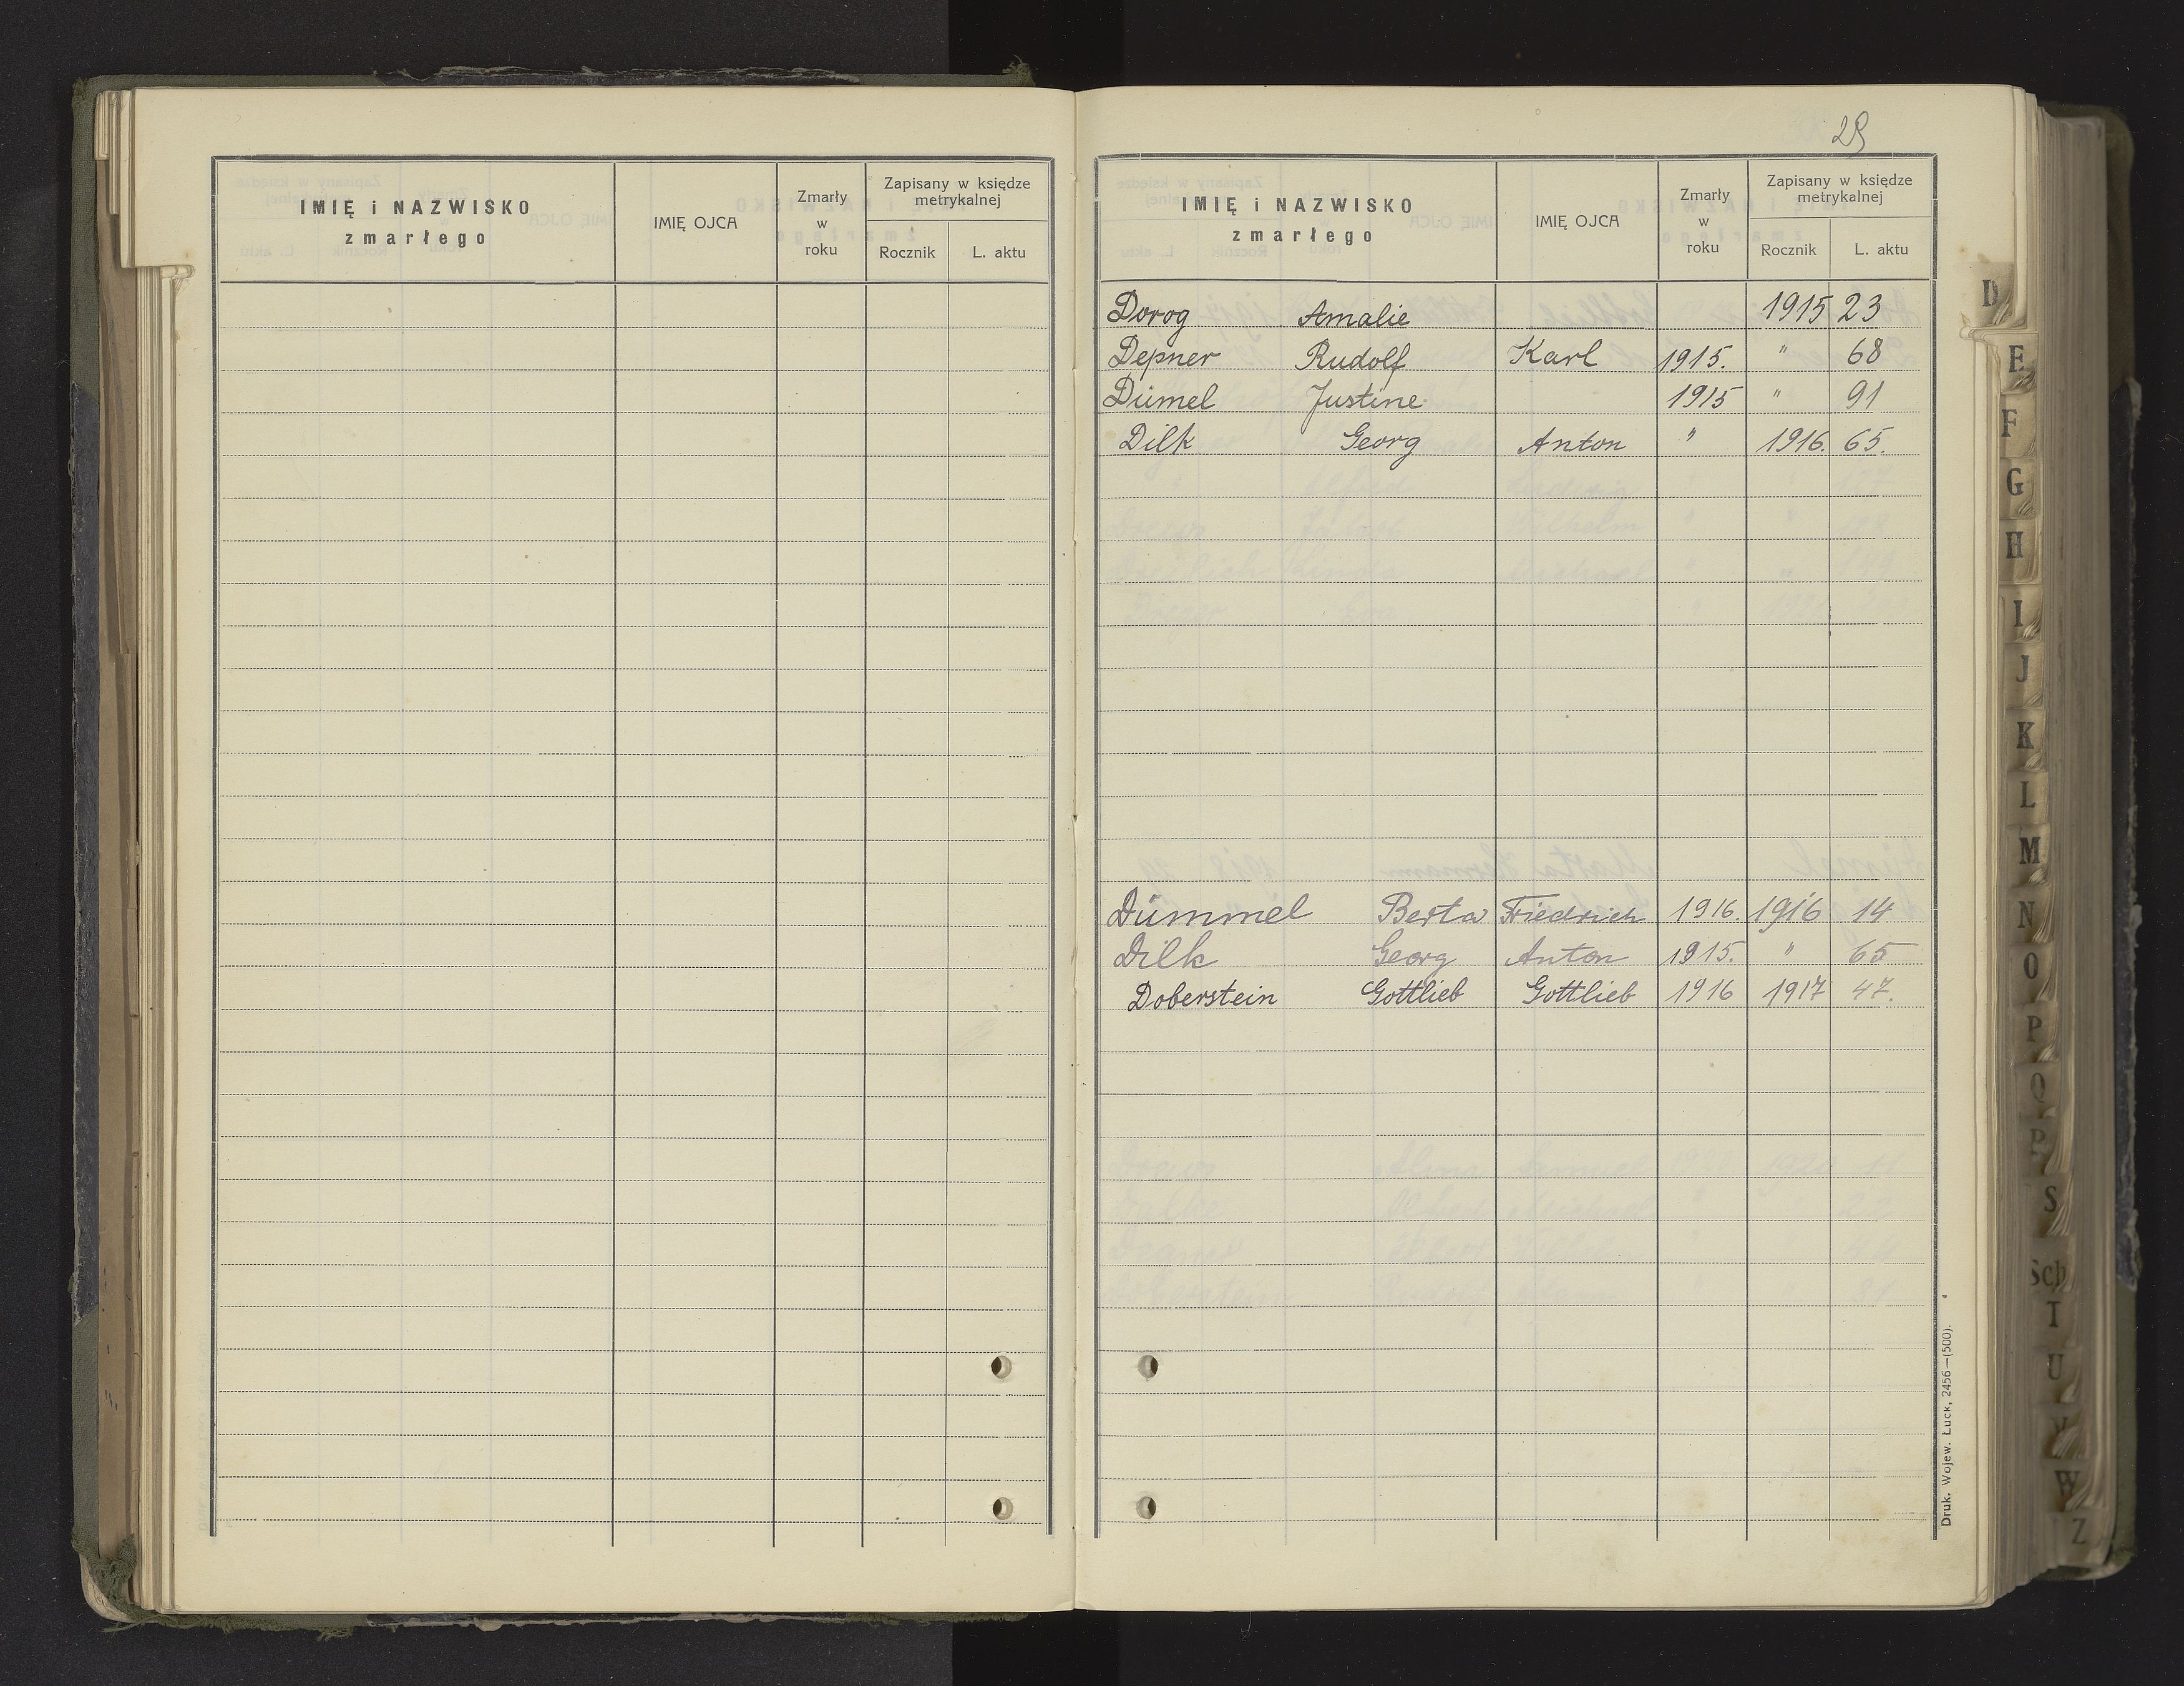 29
IMIĘ i NAZWISKO
zmarłego
IMIĘ OJCA
Zmarły
w
roku
Zapisany w księdze
metrykalnej
Rocznik
L. aktu
IMIĘ i NAZWISKO
zmarłego
IMIĘ OJCA
Zmarły
w
roku
Zapisany w księdze
metrykalnej
Rocznik
L. aktu
Dorog Amalie 1915 23
Depner Rudolf Karl 1915. " 68
Dümel Justine 1915 " 91
Dilk Georg Anton " 1916. 65.
Dümmel Berta Friedrich 1916. 1916 14
Dilk Georg Anton 1915. " 65
Doberstein Gottlieb Gottlieb 1916 1917 47.
Druk. Wojew. Łuck, 2456—(500).
D
E
F
G
H
I
J
K
L
M
N
O
P
Q
S
Sch
T
U
V
W
Z